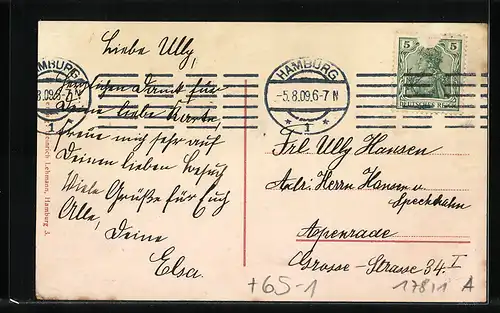 Liebe Ully,
Herzlichen Dank für
Deine liebe Karte
freue mich sehr auf
Deinen lieben Besuch
Viele Grüße für Euch
Alle,
Deine
Elsa
HAMBURG
8.09.6-7 N
1
HAMBURG
-5.8.09.6-7 N
* 1 *
5 5
DEUTSCHES REICH
Frl. Ully Hansen
Adr. Herrn Hansen u.
Apenrade
Grosse-Strasse 34. I
Heinrich Lehmann, Hamburg 3.
+65-1
17811 A